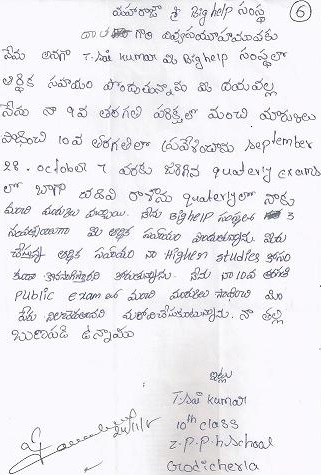 మహారాజా శ్రీ Bighelp సంస్థ
6
గారి దివ్యసముఖమునకు
నేను అనగా T. Sai kumar మీ Bighelp సంస్థలో
ఆర్థిక సహాయం పొందుతున్నాను మీ దయవల్ల
నేను నా 9వ తరగతి పరీక్షలో మంచి మార్కులు
సాధించి 10వ తరగతిలో ప్రవేశించాను September
28. October 7 వరకు జరిగిన quaterly exams
లో బాగా చదివి రాశాను quaterlyలో నాకు
మంచి మార్కులు వచ్చాయి. నేను Bighelp సంస్థల 3
సంవత్సరాలుగా మీ ఆర్థిక సహాయం పొందుతున్నాను. మీరు
చేస్తున్న ఆర్థిక సహాయం నా Highest studies కోసం
కూడా కొనసాగిస్తారని కోరుతున్నాను. నేను నా 10వ తరగతి
Public exam లో మంచి మార్కులు సాధించి మీ
పేరు నిలబెడతానని మనవిచేసుకుంటున్నాను. నా తల్లి
ఋణపడి ఉన్నాము
ఇట్లు
T. Sai kumar
10th class
Z.P.P.H. School
Godicherla